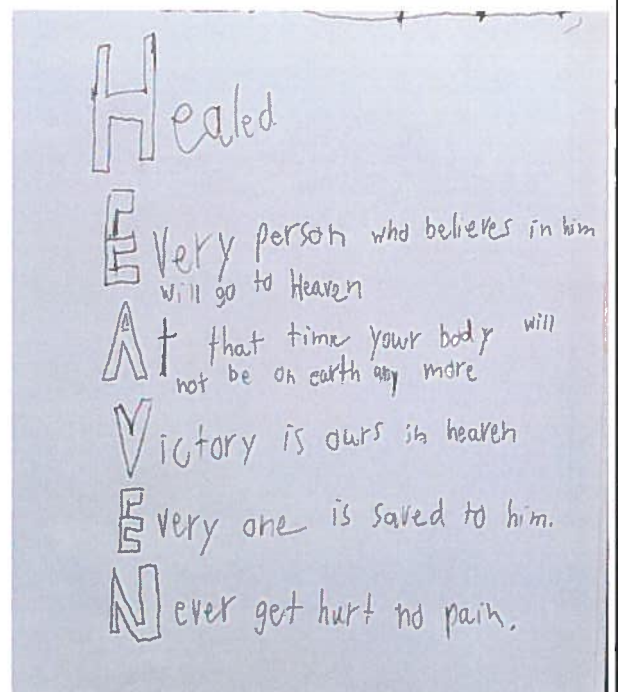 Healed
Every person who believes in him
will go to Heaven
At that time your body will
not be on earth any more
Victory is ours in heaven
Every one is saved to him.
Never get hurt no pain.